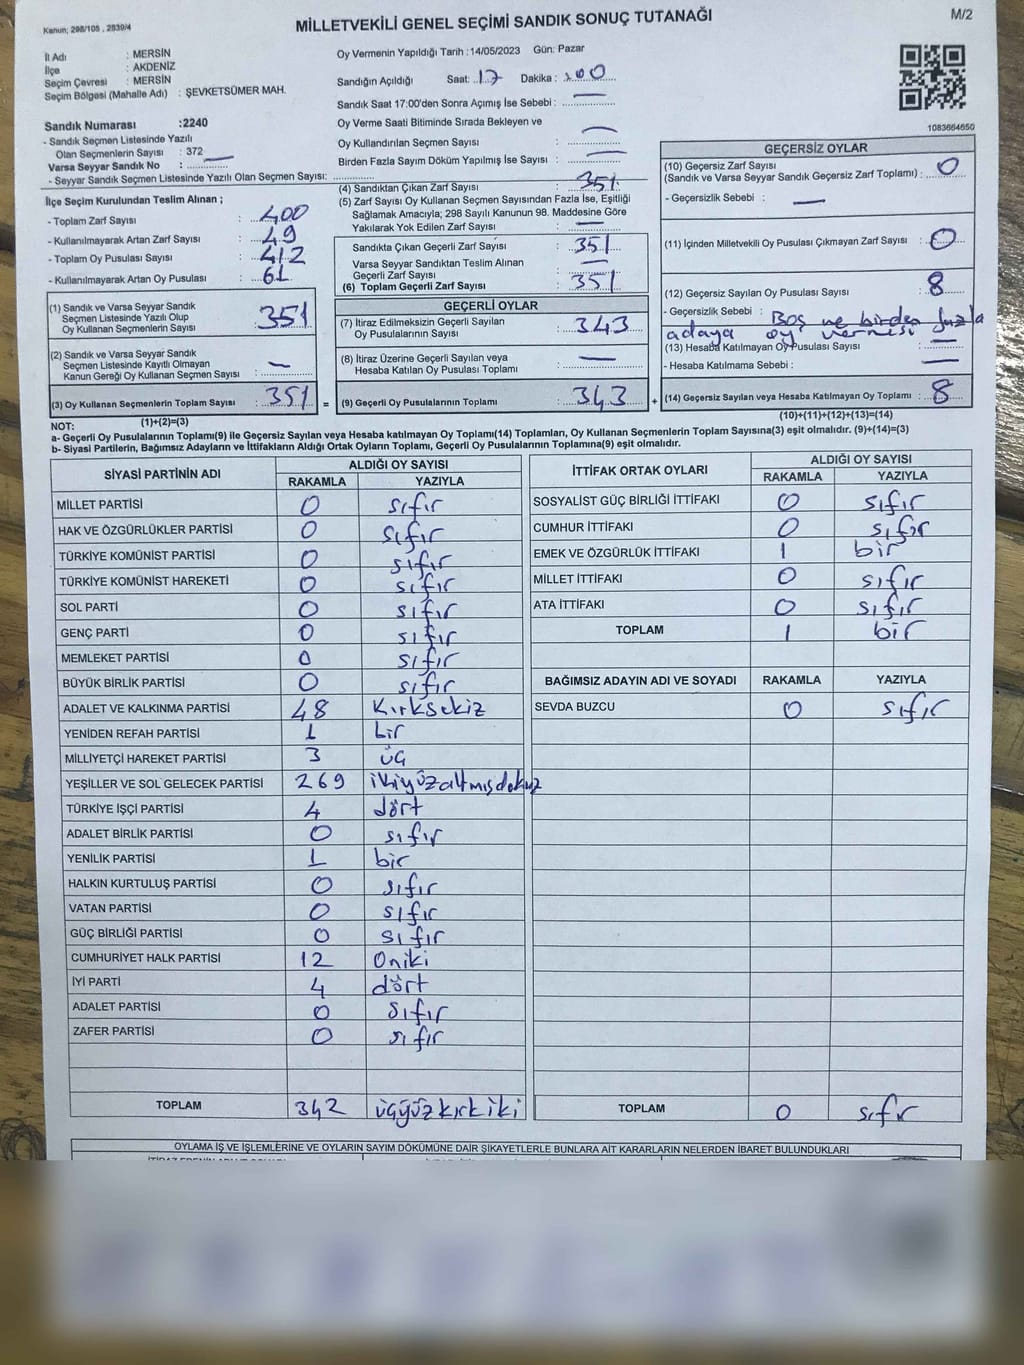 Kanun; 298/105 , 2839/4
MİLLETVEKİLİ GENEL SEÇİMİ SANDIK SONUÇ TUTANAĞI
M/2
İl Adı : MERSİN
İlçe : AKDENİZ
Seçim Çevresi : MERSİN
Seçim Bölgesi (Mahalle Adı) : ŞEVKETSÜMER MAH.
Sandık Numarası :2240
- Sandık Seçmen Listesinde Yazılı
Olan Seçmenlerin Sayısı : 372
Varsa Seyyar Sandık No :
- Seyyar Sandık Seçmen Listesinde Yazılı Olan Seçmen Sayısı:
Oy Vermenin Yapıldığı Tarih :14/05/2023 Gün: Pazar
Sandığın Açıldığı Saat: 17 Dakika : :00
Sandık Saat 17:00'den Sonra Açımış İse Sebebi :
Oy Verme Saati Bitiminde Sırada Bekleyen ve
Oy Kullandırılan Seçmen Sayısı :
Birden Fazla Sayım Döküm Yapılmış İse Sayısı :
1083664650
İlçe Seçim Kurulundan Teslim Alınan ;
- Toplam Zarf Sayısı : 400
- Kullanılmayarak Artan Zarf Sayısı : 49
- Toplam Oy Pusulası Sayısı : 412
- Kullanılmayarak Artan Oy Pusulası : 61
(1) Sandık ve Varsa Seyyar Sandık
Seçmen Listesinde Yazılı Olup
Oy Kullanan Seçmenlerin Sayısı : 351
(2) Sandık ve Varsa Seyyar Sandık
Seçmen Listesinde Kayıtlı Olmayan
Kanun Gereği Oy Kullanan Seçmen Sayısı : –
(3) Oy Kullanan Seçmenlerin Toplam Sayısı : 351 =
(1)+(2)=(3)
(4) Sandıktan Çıkan Zarf Sayısı : 351
(5) Zarf Sayısı Oy Kullanan Seçmen Sayısından Fazla İse, Eşitliği
Sağlamak Amacıyla; 298 Sayılı Kanunun 98. Maddesine Göre
Yakılarak Yok Edilen Zarf Sayısı :
Sandıkta Çıkan Geçerli Zarf Sayısı : 351
Varsa Seyyar Sandıktan Teslim Alınan
Geçerli Zarf Sayısı : —
(6) Toplam Geçerli Zarf Sayısı : 351
GEÇERLİ OYLAR
(7) İtiraz Edilmeksizin Geçerli Sayılan
Oy Pusulalarının Sayısı : 343
(8) İtiraz Üzerine Geçerli Sayılan veya
Hesaba Katılan Oy Pusulası Toplamı : —
(9) Geçerli Oy Pusulalarının Toplamı : 343 +
GEÇERSİZ OYLAR
(10) Geçersiz Zarf Sayısı
(Sandık ve Varsa Seyyar Sandık Geçersiz Zarf Toplamı) : 0
- Geçersizlik Sebebi : —
(11) İçinden Milletvekili Oy Pusulası Çıkmayan Zarf Sayısı : 0
(12) Geçersiz Sayılan Oy Pusulası Sayısı : 8
- Geçersizlik Sebebi : Boş ve birden fazla
adaya oy vermesi
(13) Hesaba Katılmayan Oy Pusulası Sayısı : —
- Hesaba Katılmama Sebebi : —
(14) Geçersiz Sayılan veya Hesaba Katılmayan Oy Toplamı : 8
(10)+(11)+(12)+(13)=(14)
NOT:
a- Geçerli Oy Pusulalarının Toplamı(9) ile Geçersiz Sayılan veya Hesaba katılmayan Oy Toplamı(14) Toplamları, Oy Kullanan Seçmenlerin Toplam Sayısına(3) eşit olmalıdır. (9)+(14)=(3)
b- Siyasi Partilerin, Bağımsız Adayların ve İttifakların Aldığı Ortak Oyların Toplamı, Geçerli Oy Pusulalarının Toplamına(9) eşit olmalıdır.
SİYASİ PARTİNİN ADI ALDIĞI OY SAYISI
RAKAMLA YAZIYLA
MİLLET PARTİSİ 0 sıfır
HAK VE ÖZGÜRLÜKLER PARTİSİ 0 sıfır
TÜRKİYE KOMÜNİST PARTİSİ 0 sıfır
TÜRKİYE KOMÜNİST HAREKETİ 0 sıfır
SOL PARTİ 0 sıfır
GENÇ PARTİ 0 sıfır
MEMLEKET PARTİSİ 0 sıfır
BÜYÜK BİRLİK PARTİSİ 0 sıfır
ADALET VE KALKINMA PARTİSİ 48 Kırksekiz
YENİDEN REFAH PARTİSİ 1 bir
MİLLİYETÇİ HAREKET PARTİSİ 3 üç
YEŞİLLER VE SOL GELECEK PARTİSİ 269 ikiyüzaltmışdokuz
TÜRKİYE İŞÇİ PARTİSİ 4 dört
ADALET BİRLİK PARTİSİ 0 sıfır
YENİLİK PARTİSİ 1 bir
HALKIN KURTULUŞ PARTİSİ 0 sıfır
VATAN PARTİSİ 0 sıfır
GÜÇ BİRLİĞİ PARTİSİ 0 sıfır
CUMHURİYET HALK PARTİSİ 12 Oniki
İYİ PARTİ 4 dört
ADALET PARTİSİ 0 sıfır
ZAFER PARTİSİ 0 sıfır
TOPLAM 342 üçyüzkırkiki
İTTİFAK ORTAK OYLARI ALDIĞI OY SAYISI
RAKAMLA YAZIYLA
SOSYALİST GÜÇ BİRLİĞİ İTTİFAKI 0 sıfır
CUMHUR İTTİFAKI 0 sıfır
EMEK VE ÖZGÜRLÜK İTTİFAKI 1 bir
MİLLET İTTİFAKI 0 sıfır
ATA İTTİFAKI 0 sıfır
TOPLAM 1 bir
BAĞIMSIZ ADAYIN ADI VE SOYADI RAKAMLA YAZIYLA
SEVDA BUZCU 0 sıfır
TOPLAM 0 sıfır
OYLAMA İŞ VE İŞLEMLERİNE VE OYLARIN SAYIM DÖKÜMÜNE DAİR ŞİKAYETLERLE BUNLARA AİT KARARLARIN NELERDEN İBARET BULUNDUKLARI